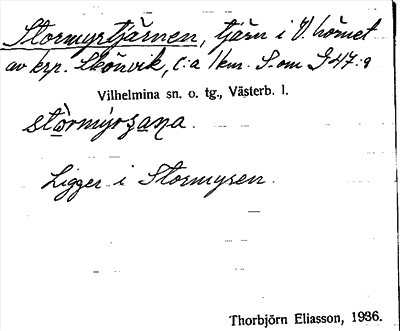 Stormyrtjärnen, tjärn i V. hörnet
av krp. Skönvik, c:a 1 km. S. om G 47:9
Vilhelmina sn. o. tg., Västerb. l.
stòrmýrʒana.
Ligger i Stormyren.
Thorbjörn Eliasson, 1936.